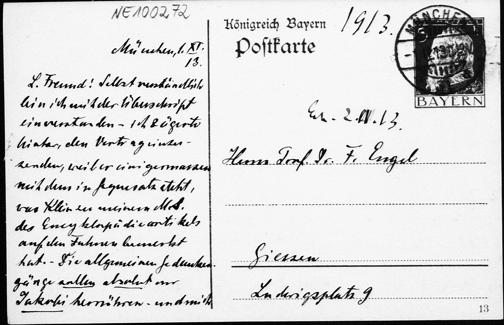 NE100272
Königreich Bayern
Postkarte
1913.
MÜNCHEN
BAYERN
München, 1. XI.
13.
L. Freund! Selbstverständlich
bin ich mit der Überschrift
einverstanden – ich zögerte
den Vertrag einzu-
senden, weil er einigermassen
mit dem in Gegensatz steht,
was Klein zu meinem Ms.
des Encyklopädieartikels
auf den Fahnen bemerkt
hat. – Die allgemeinen Gedanken-
gänge sollen absolut nur
Jakobi herrühren – und mich
Er. 2. 13.
Herrn Prof. Dr. F. Engel
Giessen
Ludwigsplatz 9
13